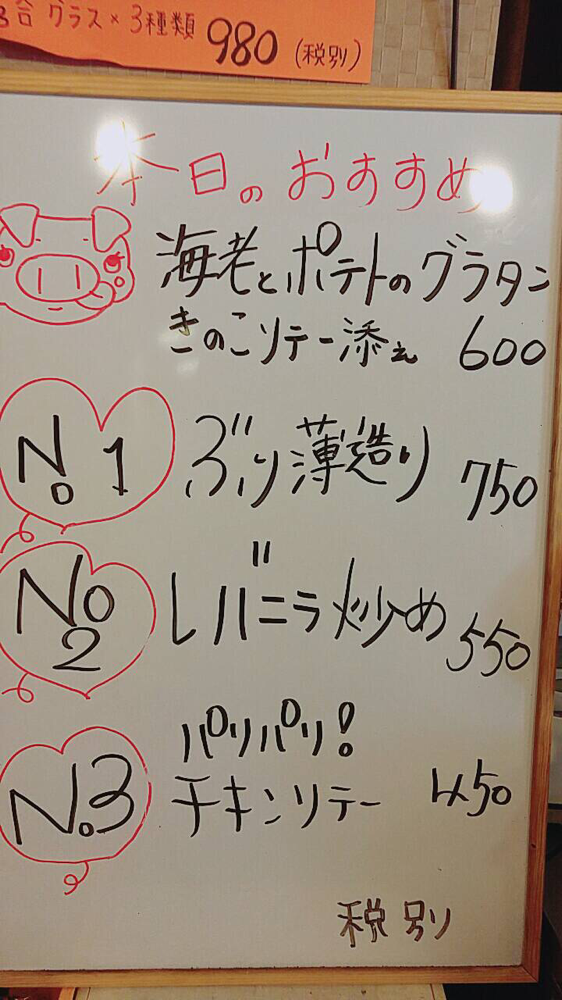 合 グラス×3種類 980 (税別)
本日のおすすめ
海老とポテトのグラタン
きのこソテー添え 600
No 1 ぶり薄造り 750
No 2 レバニラ炒め 550
パリパリ!
No.3 チキンソテー 450
税別